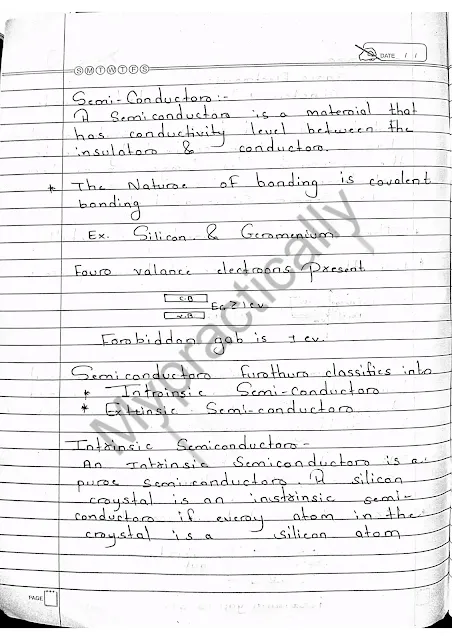 DATE / /
S M T W T F S
Semi-Conductor:-
A Semiconductor is a material that
has conductivity level between the
insulator & conductor.
* The Nature of bonding is covalent
bonding
Ex. Silicon & Geramenium
Four valance electrons present
C.B
EG≥1ev
V.B
Forbidden gab is 1 ev.
Semiconductor Further classifies into
* Intrinsic Semi-Conductor
* Extrinsic Semi-conductor
Intrinsic Semiconductor-
An Intrinsic Semiconductor is a
pure semi-conductor. A silicon
crystal is an instrinsic semi-
conductor if every atom in the
crystal is a silicon atom
PAGE
Mypractically